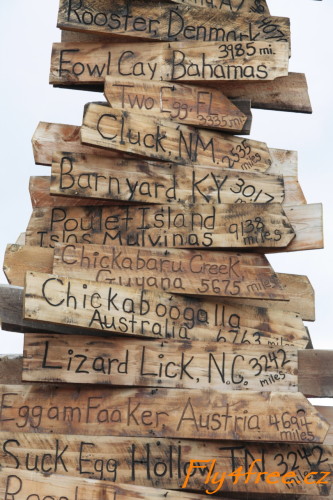 Rooster, Denmark
3985 mi.
Fowl Cay, Bahamas
Two Egg, FL
3335 mi
Cluck, NM
2535
miles
Barnyard KY 3017
miles
Poulet Island 9138
Islas Mulvinas miles
Chickabaru Creek
Guyana 5675 miles
Chickaboogalla
Australia 6763 miles
Lizard Lick, N.C. 3242
miles
EggamFaaker Austria 4694
miles
Suck Egg Hollow, TN 3242
miles
Fly4free.cz